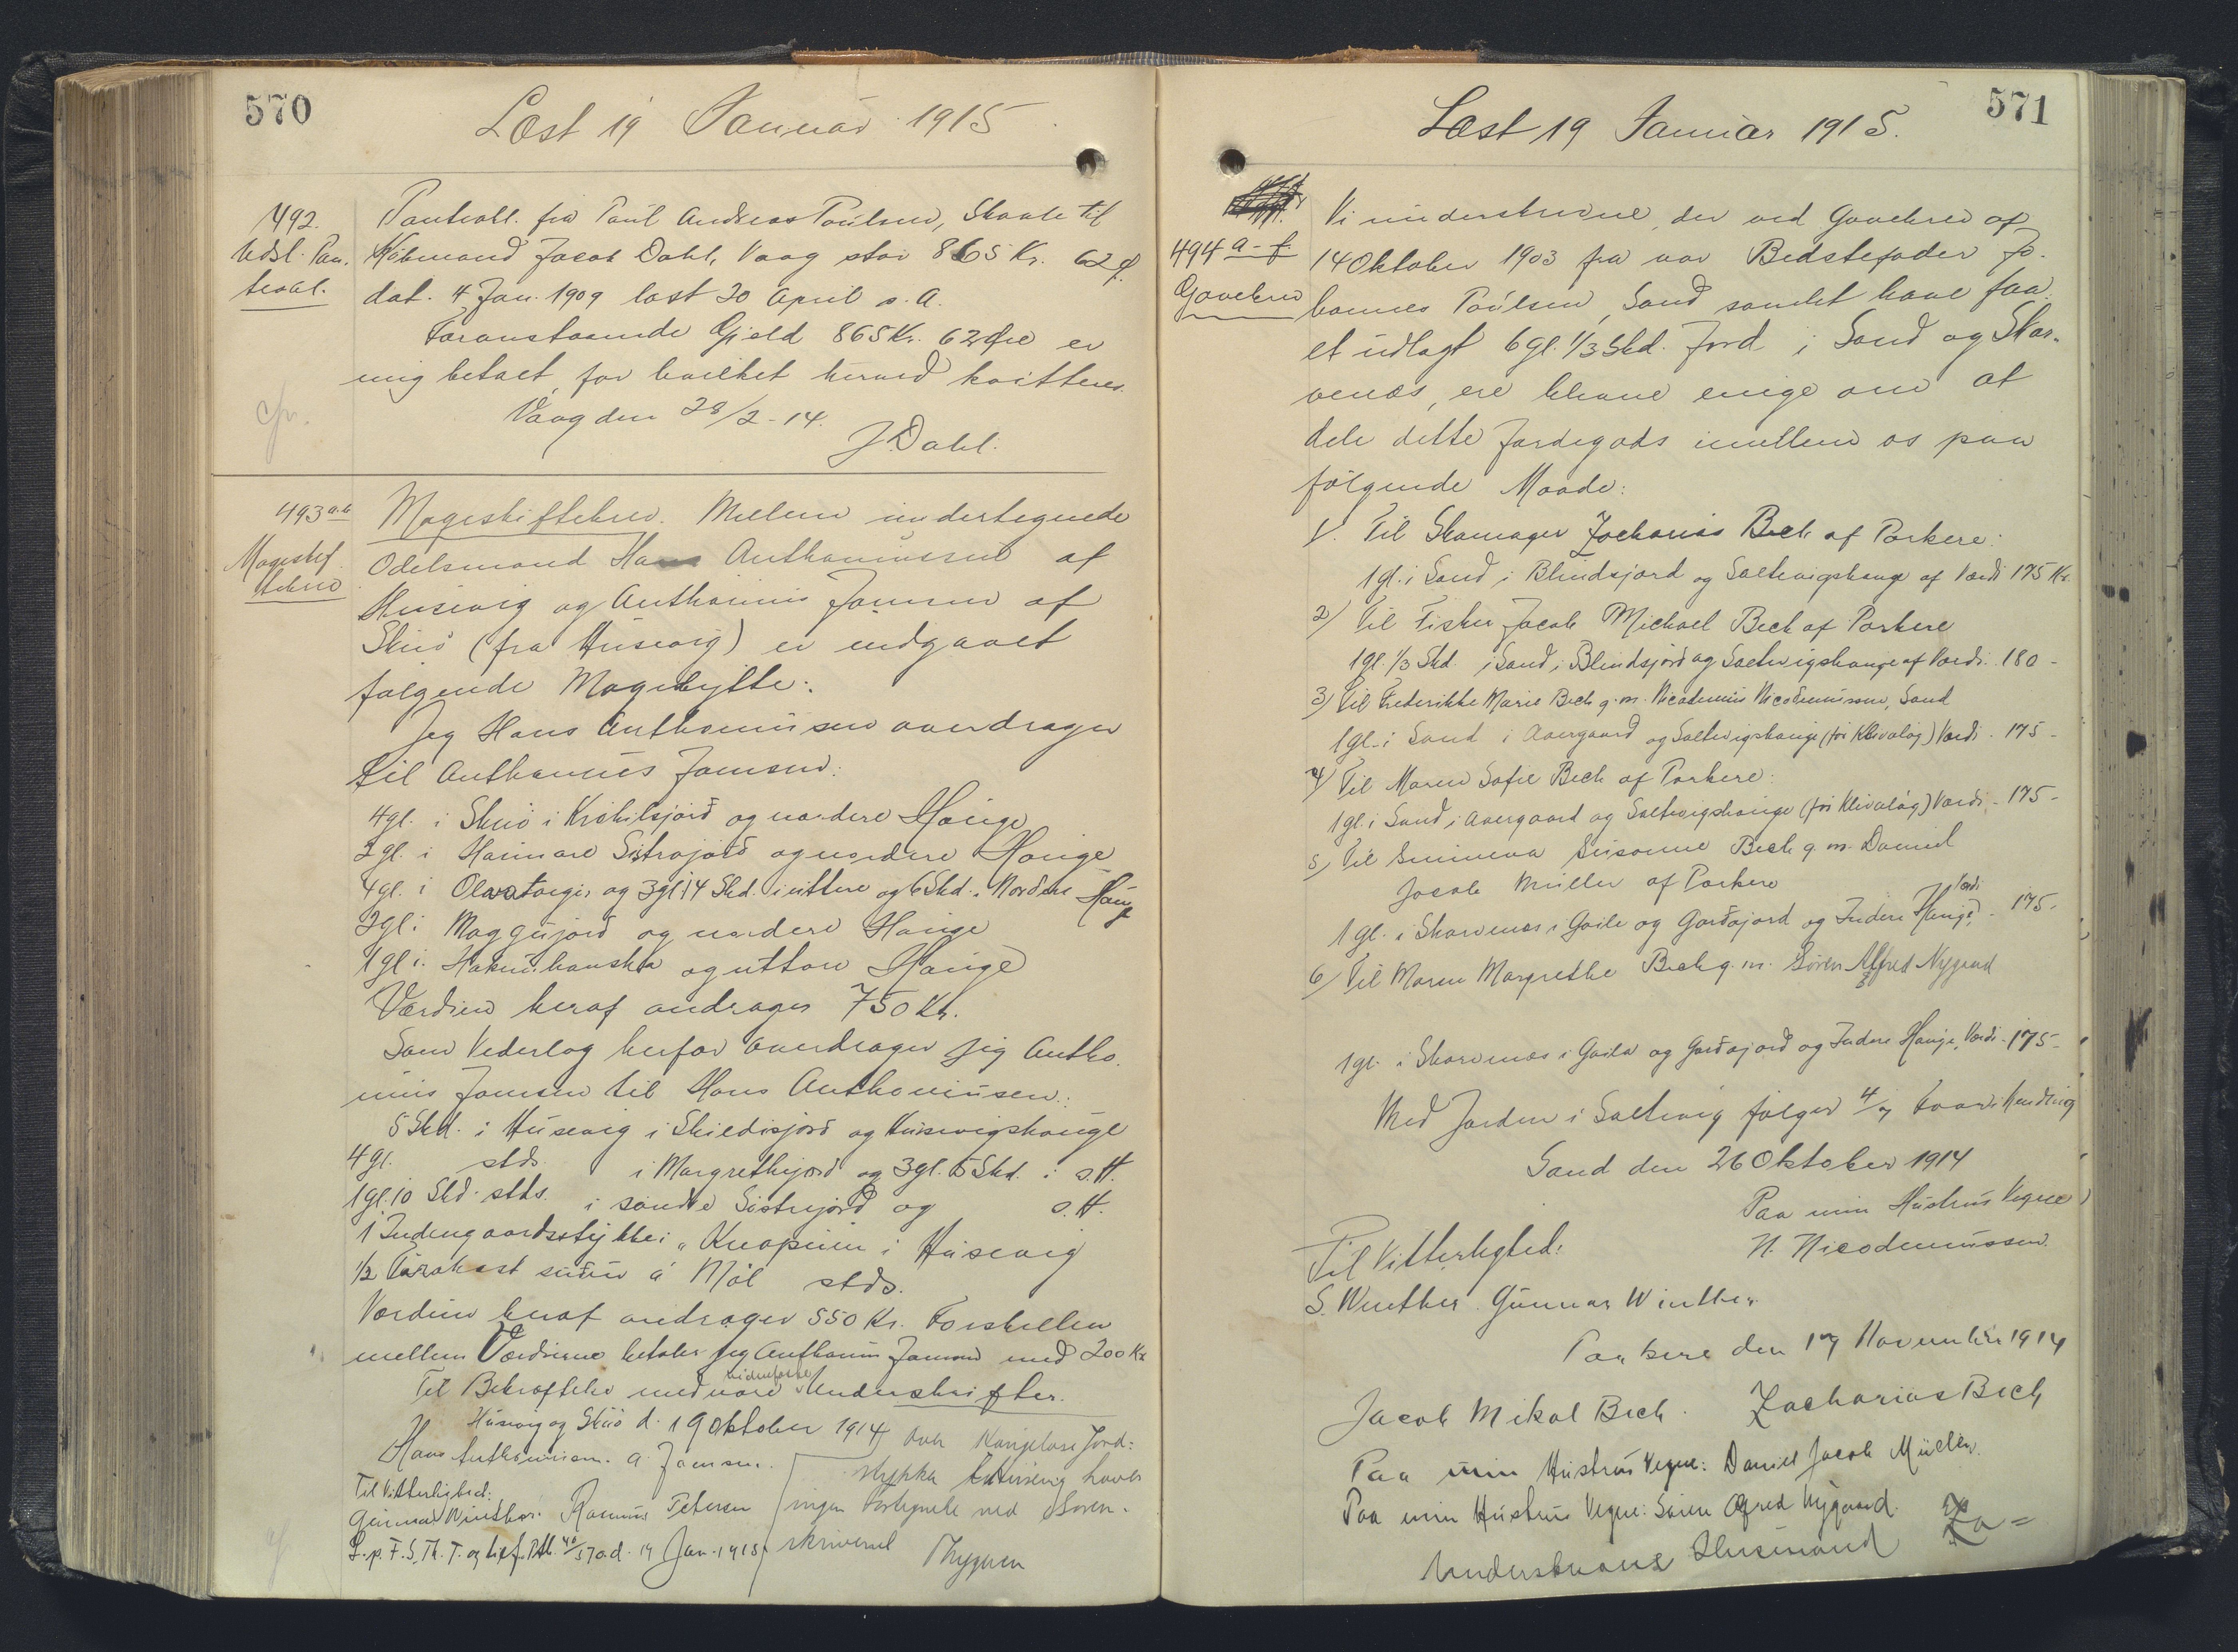 570
Læst 19 Januar 1915
492.
Udsl. Pan-
teobl.
Panteobl. fra Poul Andreas Poulsen, Skaale til
Købmand Jacob Dahl, Vaag stor 865 Kr. 62 Ø.
dat. 4 Jan. 1909 læst 20 April s. A.
Foranstaaende Gjæld 865 Kr. 62 Øre er
mig betalt, for hvilket herved kvitteres.
Vaag den 28/2-14.
J. Dahl.
cfr.
493 a-b
Mageskif-
tebrev
Mageskiftebrev. Mellem undertegnede
Odelsmand Hans Anthoniussen af
Husevig og Anthonius Joensen af
Skuø (fra Husevig) er indgaaet
følgende Magebytte:
Jeg Hans Anthoniussen overdrager
til Anthonius Joensen:
4 gl. i Skuø i Krokilsjørd og nordere Hauge
2 gl. i Heimare Sistrajørd og nordere Hauge
4 gl. i og 3 gl. 14 Skd. i uttere og 6 Skd. i Nordere Hauge
2 gl. i Maggujord og nordere Hauge
1 gl. i Hakun hanska og uttare Hauge
Værdien heraf andrager 750 Kr.
Som Vederlag herfor overdrager jeg Antho-
nius Joensen til Hans Anthoniussen:
5 Skd. i Husevig i Skieldisjørd og Husevigshauge
4 gl. stds. i Margrethujørd og 3 gl. 5 Skd. i s. H.
1 gl. 10 Skd. stds. i søndre Sistrujørd og s. H.
1 Indengaardsstykke i "Knapinum" i Husevig
1/2 Tarakast sudur á Møl stds.
Værdien heraf andrager 550 Kr. Forskellen
mellem Værdierne betaler jeg Anthonius Joensen med 200 Kr.
Til Bekræftelse med vore vidnefaste Underskrifter.
Husevig og Skuø d. 19 Oktober 1914
Hans Anthoniussen. A. Joensen.
Til Vitterlighed:
Gunnar Winther. Rasmus Petersen
L. p. F. S. Th. T. og hæf. Ptb. 40/570 d. 19 Jan. 1915
Det haugeløse Jord-
stykke i Husevig haves
ingen Fortegnelse ved Soren-
skriveriet
Thygesen
571
Læst 19 Januar 1915.
494 a-f
Gavebrev
Vi underskrevne, der ved Gavebrev af
14 Oktober 1903 fra vor Bedstefader Jo-
hannes Poulsen, Sand samlet have faa-
et udlagt 6 gl. 1/3 Skd. Jord i Sand og Skar-
venæs, ere blevne enige om at
dele dette Jordegods imellem os paa
følgende Maade:
1. Til Skomager Zacharias Bech af Porkere:
1 gl. i Sand i Blindsjørd og Saltvigshauge af Værdi 175 Kr.
2) Til Fisker Jacob Michael Bech af Porkere
1 gl. 1/3 Skd. i Sand i Blindsjørd og Saltvigshauge af Værdi 180 -
3) Til Frederikke Marie Bech g. m. Nicodemus Nicodemussen, Sand
1 gl. i Sand i Avergaard og Saltvigshauge (fri Klivaløg) Værdi - 175 -
4) Til Maren Sofie Bech af Porkere:
1 gl. i Sand i Avergaard og Saltvigshauge (fri Klivaløg) Værdi - 175 -
5) Til Susanne Bech g. m. Daniel
Jacob Müller af Porkere
1 gl. i Skarvenæs i Gaila og Gardajord og Indere Hauge, Værdi - 175 -
6) Til Maren Margrethe Bech g. m. Søren Alfred Nygaard
1 gl. i Skarvenæs i Gaila og Gardajord og Indere Hauge, Værdi - 175 -
Med Jorden i Saltvig følger 4/7
Sand den 26 Oktober 1914
Paa min Hustrus Vegne
N. Nicodemussen.
Til Vitterlighed:
S. Winther. Gunnar Winther
Porkere den 17 November 1914
Jacob Mikal Bech. Zacharias Bech
Paa min Hustrus Vegne: Daniel Jacob Müller.
Paa min Hustrus Vegne: Søren Alfred Nygaard.
Underskrevne Husmand Za=